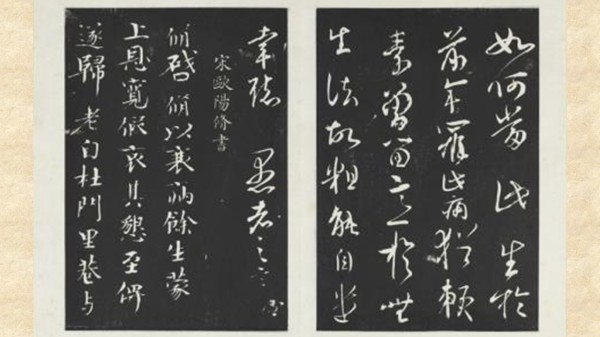 如何當此生於
前年罹此病猶賴
素曾留意於無
生法故粗能自遣
幸聽愚者之言
宋歐陽脩書
脩啓脩以衰病餘生蒙
上恩寬假哀其懇至俾
遂歸老自杜門里巷与